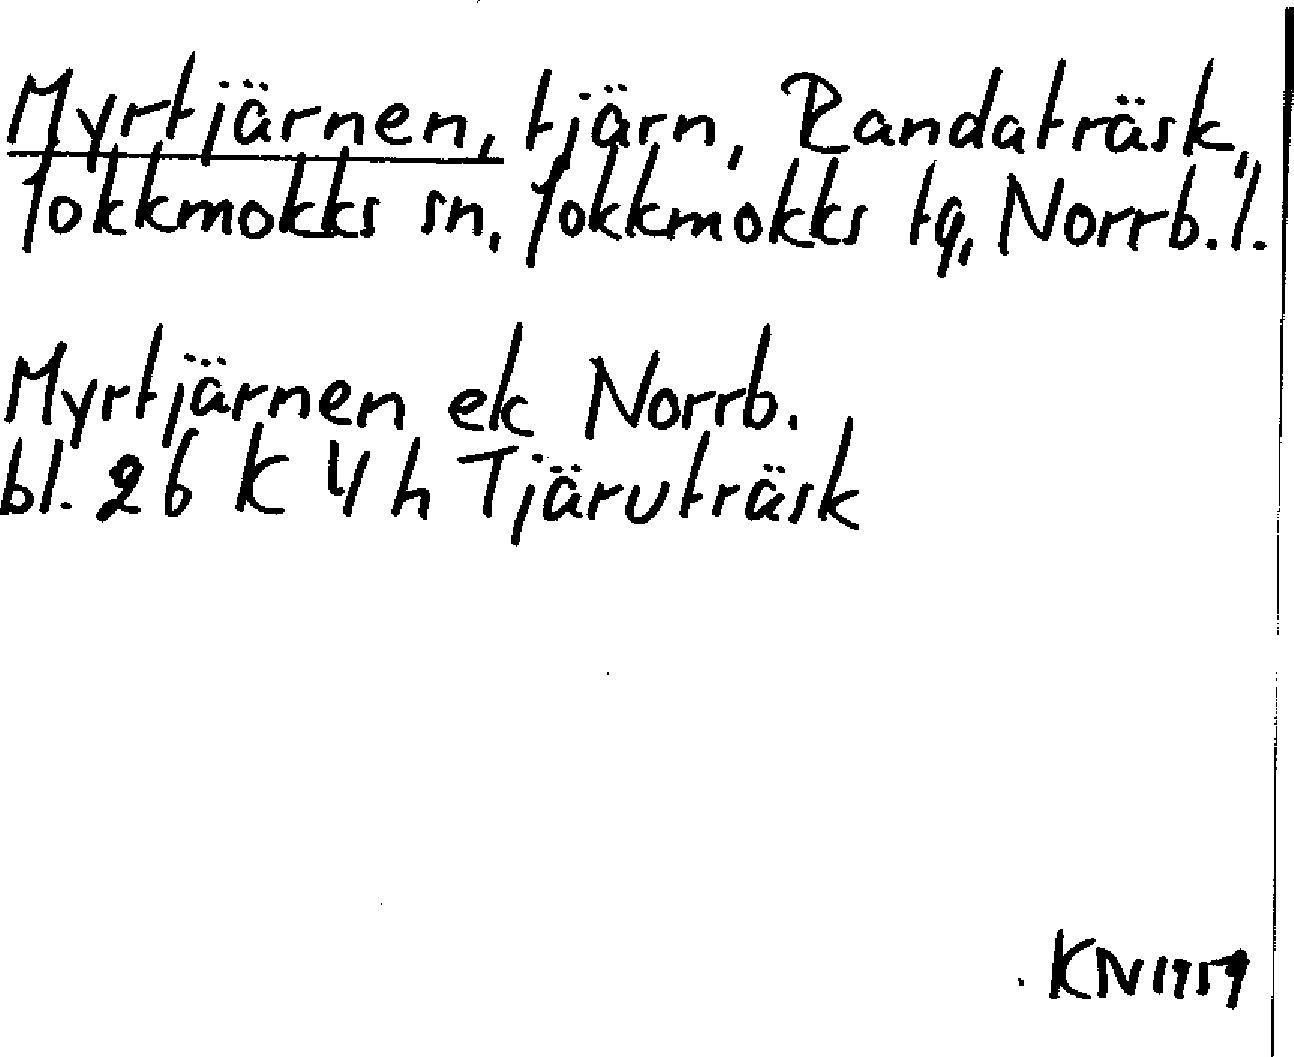 Myrtjärnen, tjärn, Randaträsk,
Jokkmokks sn, Jokkmokks tg, Norrb. l.
Myrtjärnen ek Norrb.
bl. 26 K 4 h Tjäruträsk
KN